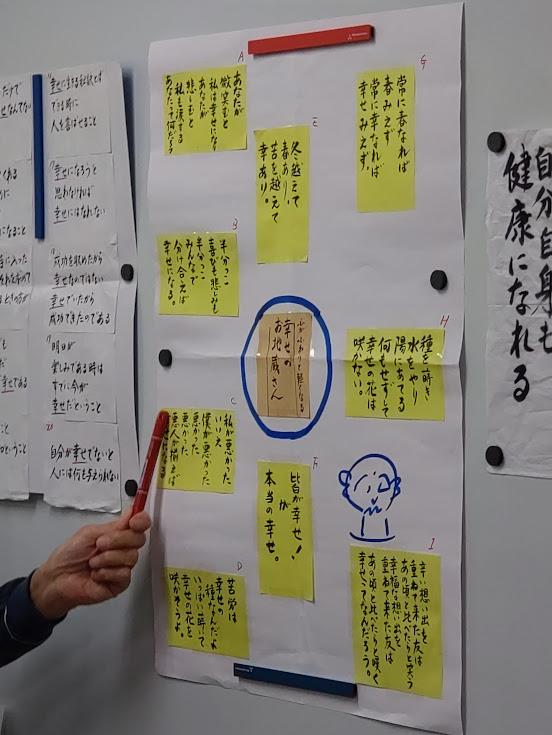 A
あなたが
微笑むと
私は幸せになり
あなたが
悲しむと
私も涙する
あなたって何だろう
E
冬越えて
春あり、
苦を越えて
幸あり。
G
常に春なれば
春みえず
常に幸なれば
幸せみえず。
B
半分っこ
喜びも悲しみも
半分っこ
みんなで
分け合えば
幸せになる。
心がふわりと軽くなる
幸せの
お地蔵さん
H
種を蒔き
水をやり
陽にあてる
何もせずして
幸せの花は
咲かない。
C
私が悪かった
いいえ
僕が悪かった
悪かった
悪人が揃えば
F
皆が幸せ!
が
本当の幸せ。
D
苦労は
幸せの
種なんだよ
いっぱい蒔いて
幸せの花を
咲かそうよ。
I
辛い想い出を
重ねて来た友は
あの頃と比べたりと笑う
幸福な想い出を
重ねて来た友は
あの頃と比べたりと嘆く
幸せってなんだろう。
人も喜ばせること
幸せになろうと
思わなければ
幸せにはなれない
成功を収めたから
幸せなのではない
幸せでいたから
成功できたのである
明日が
楽しみである時は
すでに今が
幸せだということ
20
自分が幸せでないと
人には何も与えられない
自分自身も
健康になれる